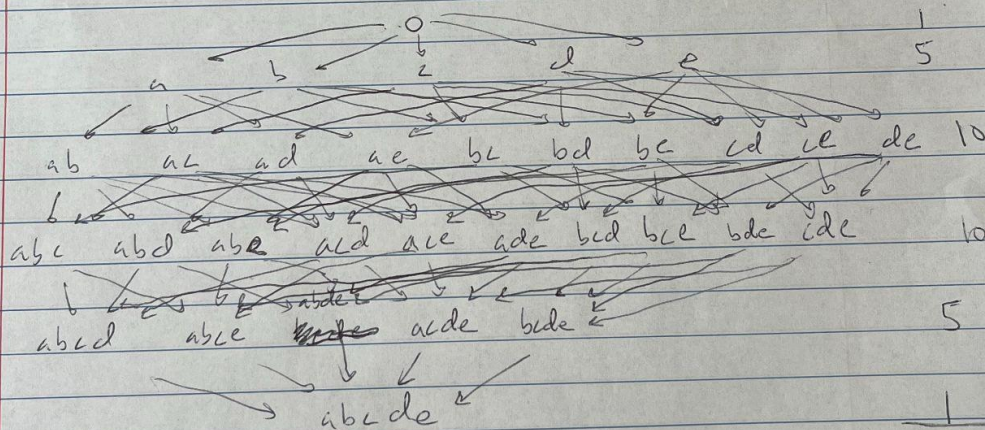 O 1
a b c d e 5
ab ac ad ae bc bd be cd ce de 10
abc abd abe acd ace ade bcd bce bde cde 10
abde
abcd abce acde bcde 5
abcde 1